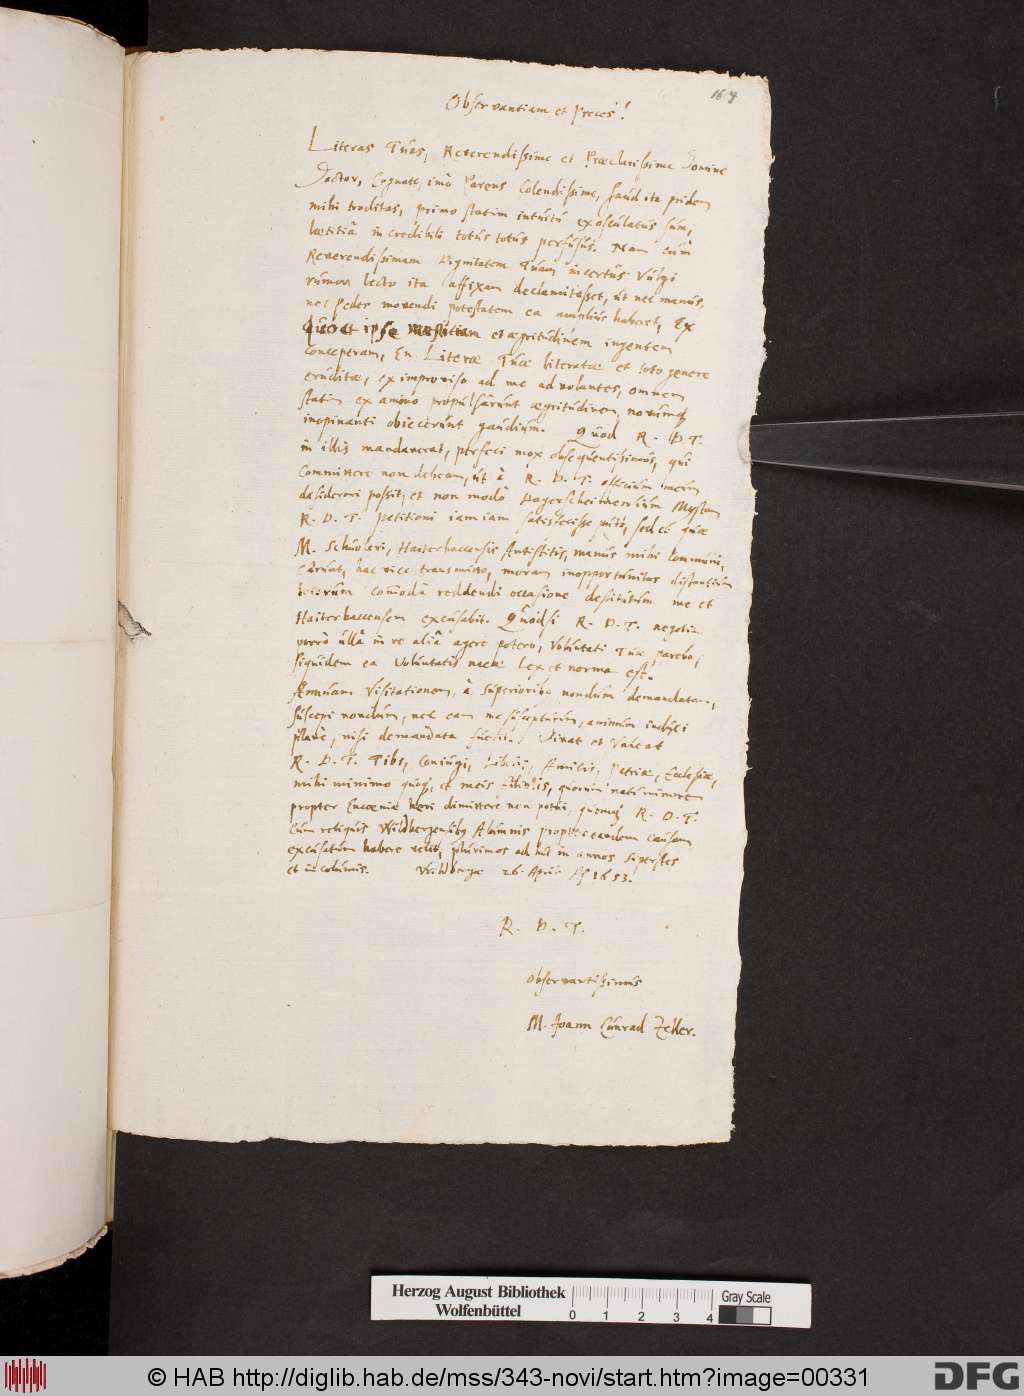 167
Observantiam et Preces!
Literas Tuas, Reverendissime et Praeclarissime Domine
Doctor, Cognate, imò Parens Colendissime, haud ita pridem
mihi traditas, primo statim intuitu exosculatus sum,
laetitiâ incredibili totus totus perfusus. Nam cùm
Reverendissimam Dignitatem Tuam incertus Vulgi
rumor lecto ita affixam declamitasset, ut nec manus,
nec pedes movendi potestatem ea amplius haberet, Ex
quo et ipse maestitiam et aegritudinem ingentem
conceptram, En Literae Tuae literatae et toto genere
eruditae, ex improviso ad me advolantes, omnem
statim ex animo propulsârunt aegritudinem, novumq
inopinanti obiecerunt gaudium. Quod R. D. T.
in illis mandaverat, perfeci mox obsequentissimus, qui
committere non debeam, ut à R. D. T. officium meum
desiderari possit, et non modò Mystam
R. D. T. petitioni iam iam satisfecisse puto, sed et quae
M. Schuoleri, Haiterbaccensis Antistitis, manus mihi communi,
cârunt, hac vice transmitto, moram inopportunitas distantium
locorum com̄odâ reddendi occasione destitutum me et
Haiterbaccensem excusabit. Quodsi R. D. T. negotia
porrò ullâ in re aliâ agere potero, Voluntati Tuae parebo,
siquidem ea Voluntatis meae Lex et norma est.
Annuam Visitationem, à Superioribus nondum demandatam,
suscepi nondum, nec eam me suscepturum, animum induxi
planè, nisi demandata fuerit. Vivat et Valeat
R. D. T. Tibi, Coniugi, Liberis, Amicis, Patriae, Ecclesiae,
mihi minimo quoq, et meis filiolis, quorum natu minorem
propter Encaenia heri dimittere non potui, quemq R. D. T.
cum reliquis Wildbergensibus Alumnis propter eandem causam
excusatum habere velit, plurimos ad huc in annos superstes
et incolumis. Wildbergae 26. April. 1653.
R. D. T.
observantissimus
M. Joann Cunrad Zeller.
Herzog August Bibliothek
Wolfenbüttel
0 1 2 3 4
Gray Scale
© HAB http://diglib.hab.de/mss/343-novi/start.htm?image=00331
DFG